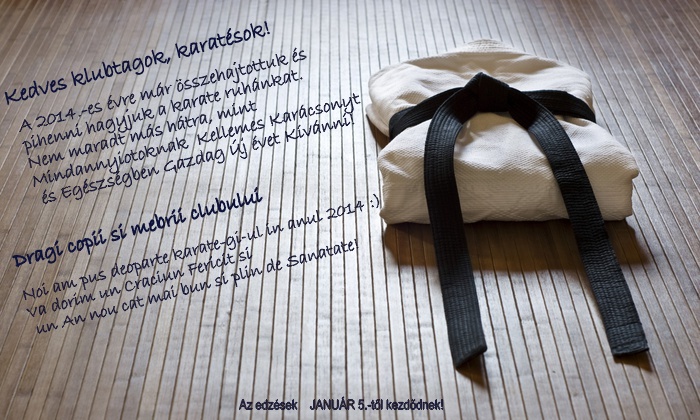 Kedves klubtagok, karatésok!
A 2014.-es évre már összehajtottuk és
pihenni hagyjuk a karate ruhánkat.
Nem maradt más hátra, mint
Mindannyiotoknak Kellemes Karácsonyt
és Egészségben Gazdag Új évet Kívánni!
Dragi copii si mebrii clubului
Noi am pus deoparte karate-gi-ul in anul 2014 :)
Va dorim un Craciun Fericit si
un An nou cat mai bun si plin de Sanatate!
Az edzések JANUÁR 5.-től kezdődnek!